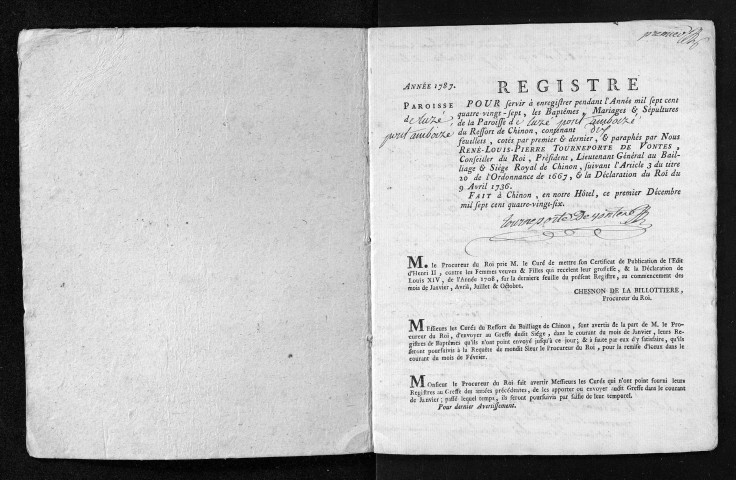 premier
ANNÉE 1787.
REGISTRE
PAROISSE
de Luzé,
pont amboizé
POUR servir à enregistrer pendant l'Année mil sept cent
quatre-vingt-sept, les Baptêmes, Mariages & Sépultures
de la Paroisse de Luzé pont amboizé
du Ressort de Chinon, contenant dix
feuillets, cotés par premier & dernier, & paraphés par Nous
RENÉ-LOUIS-PIERRE TOURNEPORTE DE VONTES,
Conseiller du Roi, Président, Lieutenant Général au Bail-
liage & Siège Royal de Chinon, suivant l'Article 3 du titre
20 de l'Ordonnance de 1667, & la Déclaration du Roi du
9 Avril 1736.
FAIT à Chinon, en notre Hôtel, ce premier Décembre
mil sept cent quatre-vingt-six.
tourneporte De vontes
M. le Procureur du Roi prie M. le Curé de mettre son Certificat de Publication de l'Edit
d'Henri II, contre les Femmes veuves & Filles qui recelent leur grossesse, & la Déclaration de
Louis XIV, de l'Année 1708, sur la derniere feuille du présent Registre, au commencement des
mois de Janvier, Avril, Juillet & Octobre.
CHESNON DE LA BILLOTTIERE,
Procureur du Roi.
MEssieurs les Curés du Ressort du Bailliage de Chinon, sont avertis de la part de M. le Pro-
cureur du Roi, d'envoyer au Greffe dudit Siége, dans le courant du mois de Janvier, leurs Re-
gistres de Baptêmes qu'ils n'ont point envoyé jusqu'à ce jour; & à faute par eux d'y satisfaire, qu'ils
seront poursuivis à la Requête de mondit Sieur le Procureur du Roi, pour la remise d'iceux dans le
courant du mois de Février.
MOnsieur le Procureur du Roi fait avertir Messieurs les Curés qui n'ont point fourni leurs
Registres au Greffe des années précédentes, de les apporter ou envoyer audit Greffe dans le courant
de Janvier; passé lequel temps, ils seront poursuivis par saisie de leur temporel.
Pour dernier Avertissement.